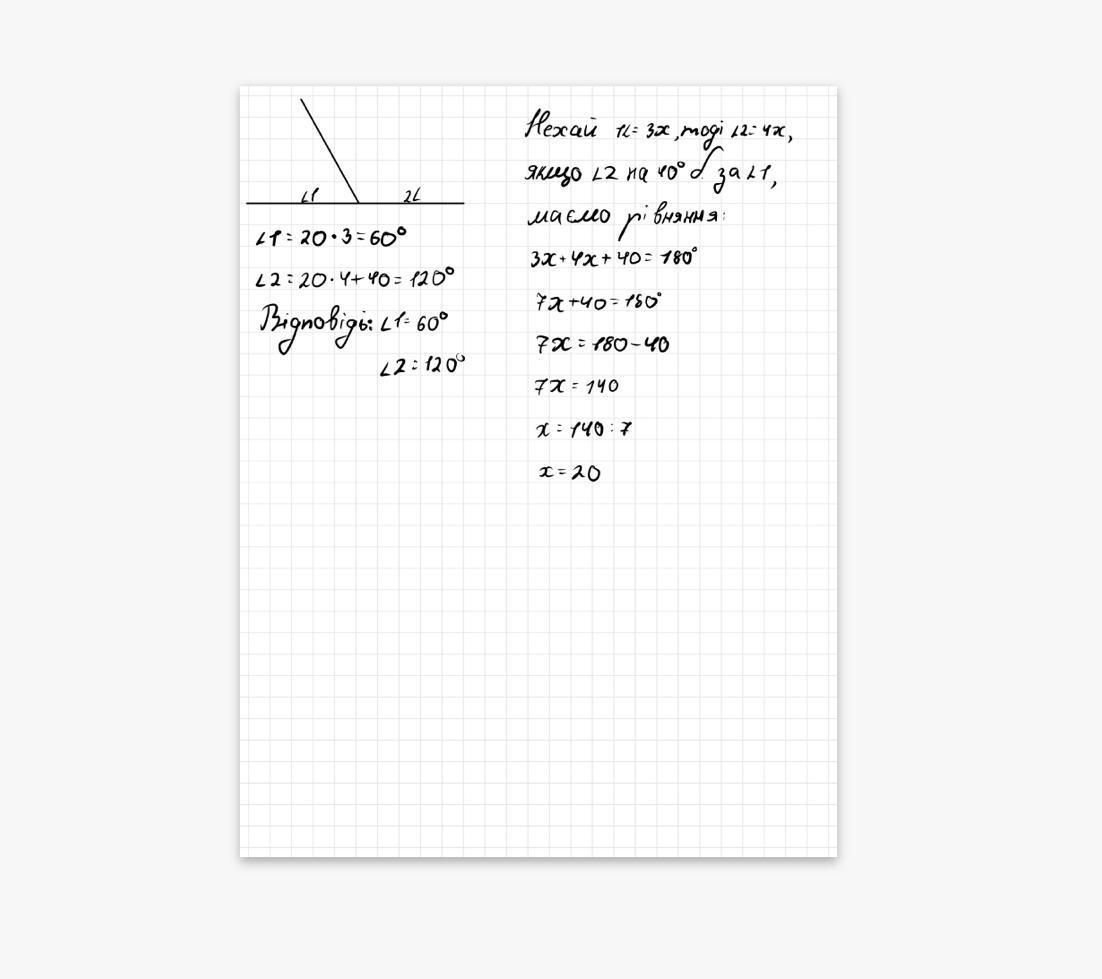 ∠1 2∠
∠1 = 20 · 3 = 60°
∠2 = 20 · 4 + 40 = 120°
Відповідь: ∠1 = 60°
∠2 = 120°
Нехай 1∠ = 3x, тоді ∠2 = 4x,
якщо ∠2 на 40° б за ∠1,
маємо рівняння:
3x + 4x + 40 = 180°
7x + 40 = 180°
7x = 180 - 40
7x = 140
x = 140 : 7
x = 20